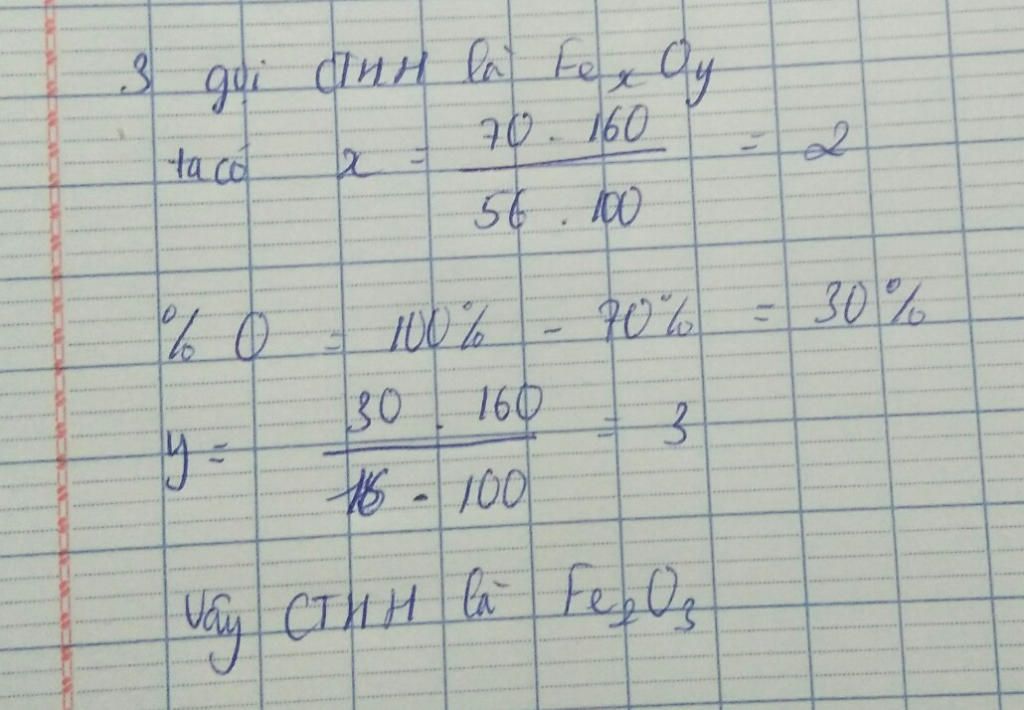 3 gọi CTHH là FeₓOy
ta có x = 70 . 160 / 56 . 100 = 2
% O = 100% - 70% = 30%
y = 30 . 160 / 16 . 100 = 3
Vậy CTHH là Fe₂O₃